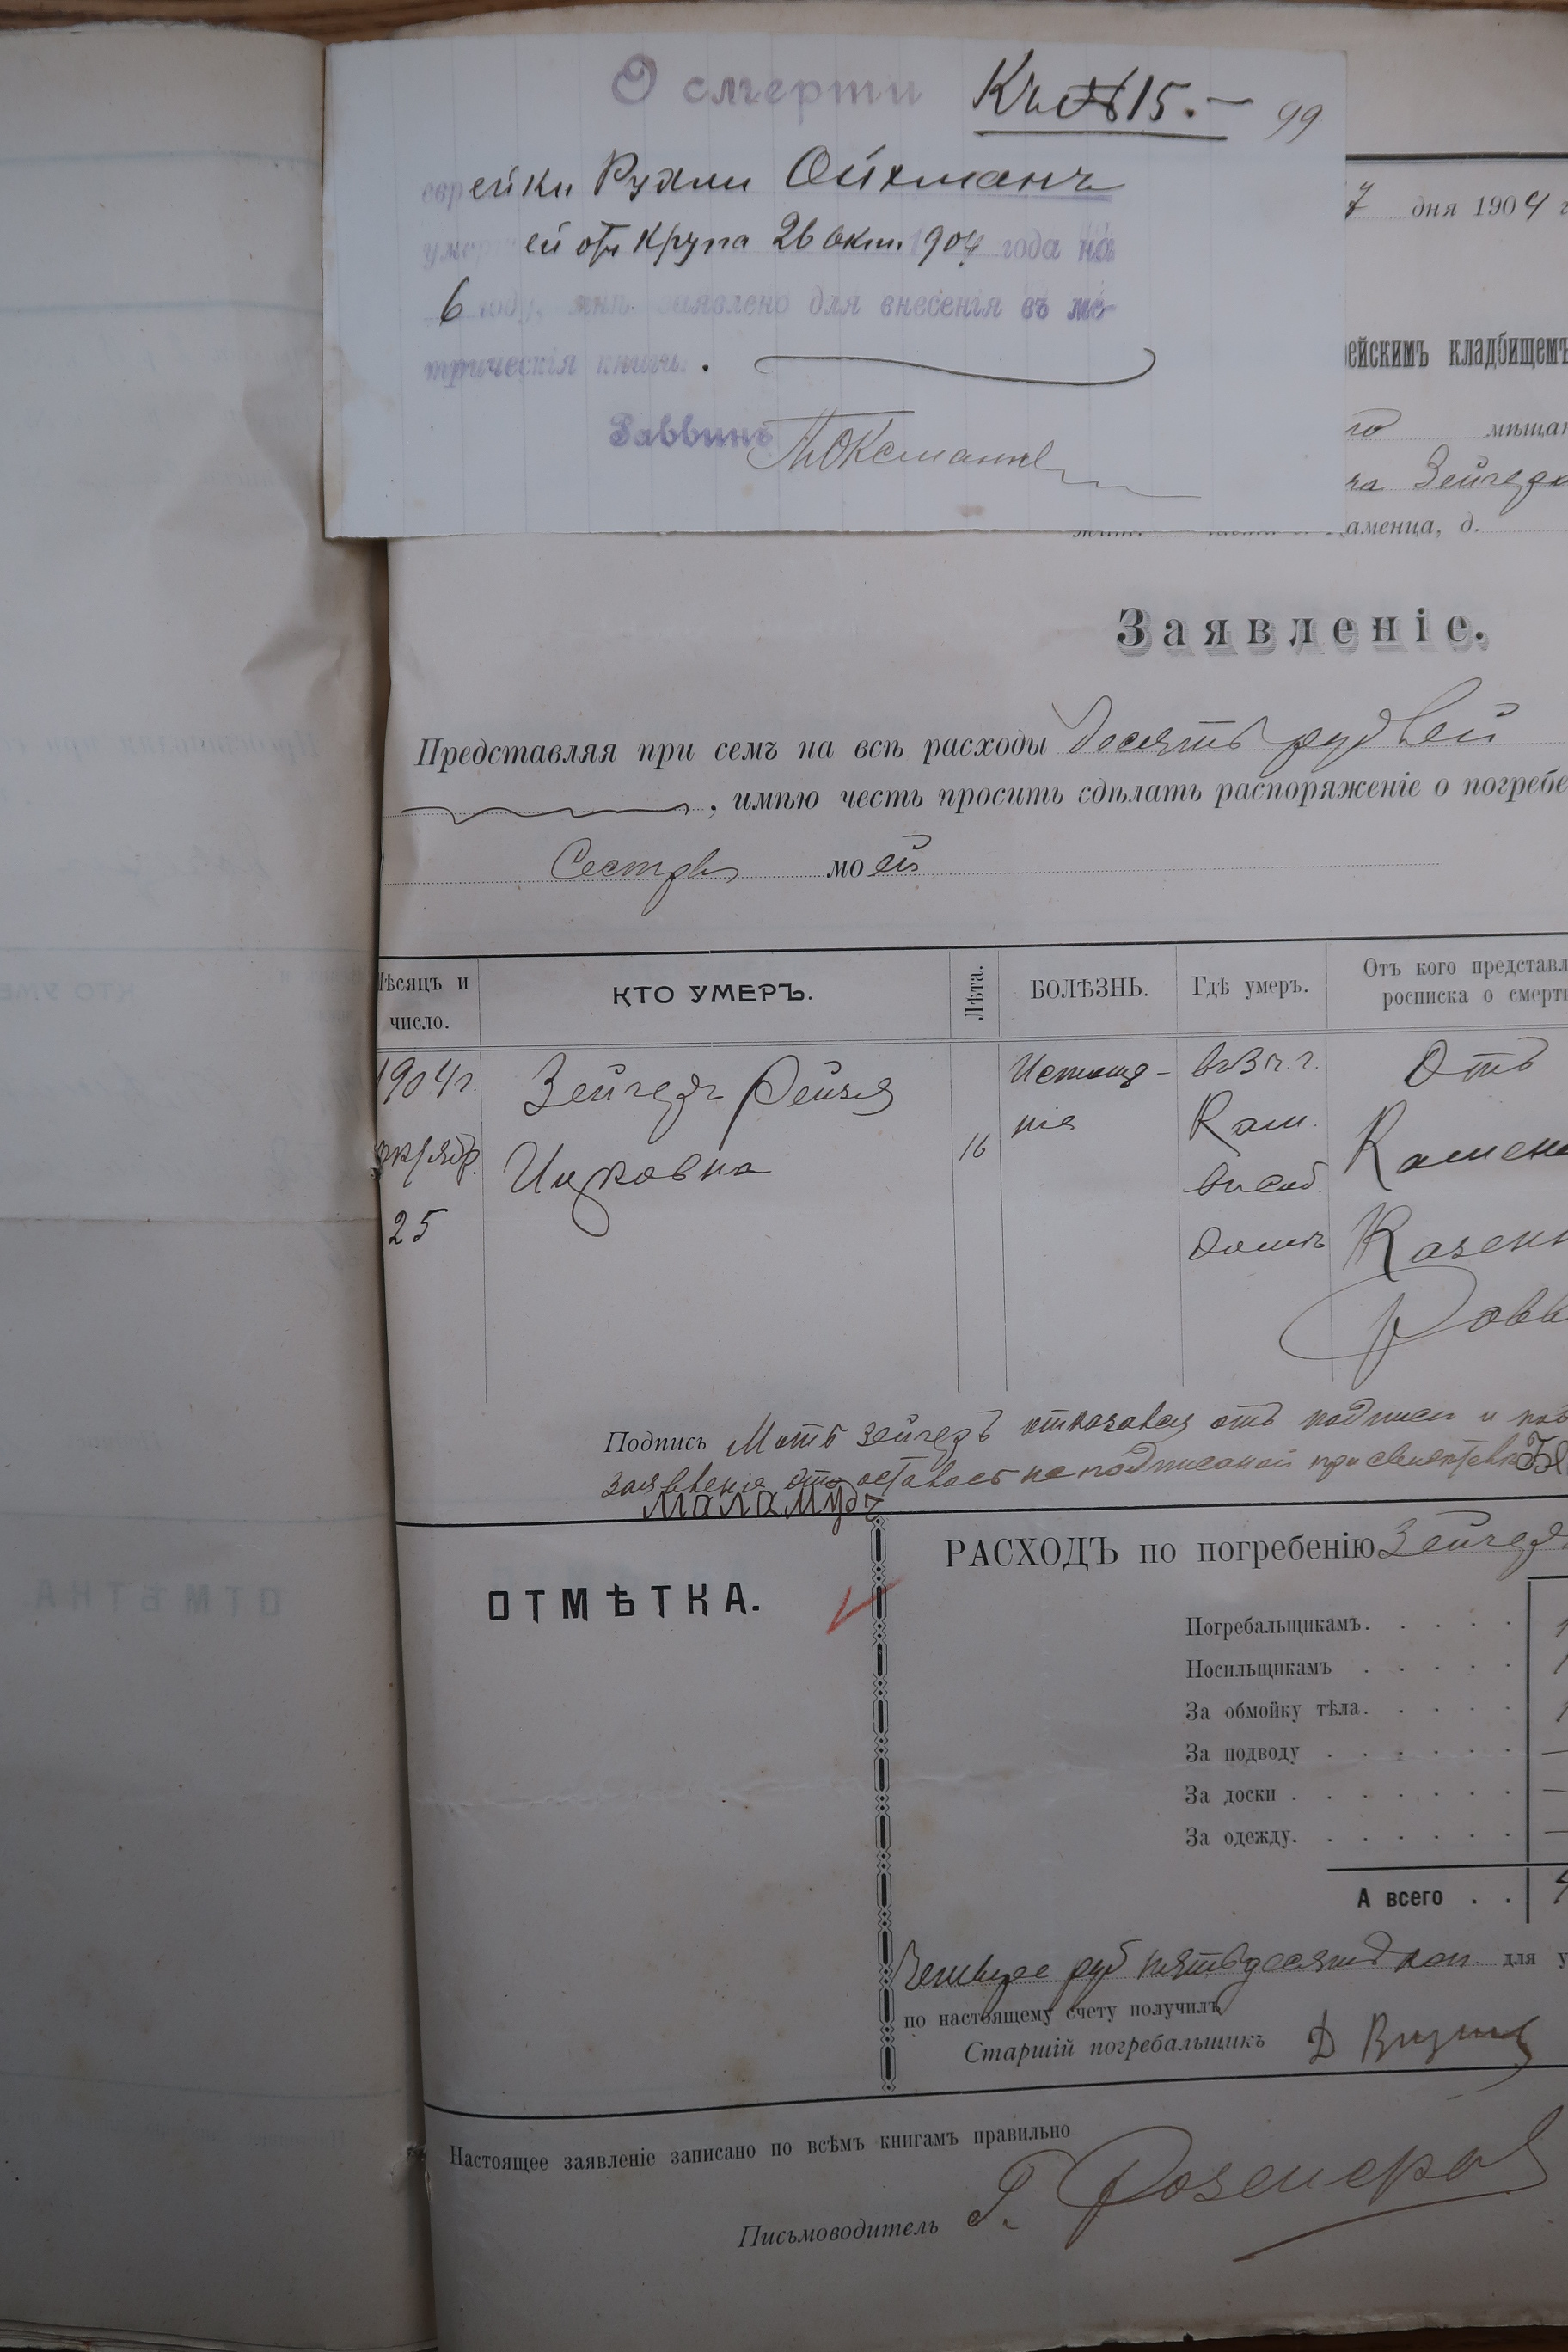 О смерти Къ № 15. — 99
еврейки Рухли Ойхманъ
умершей отъ крупа 26 окт. 1904 года на
6 году, мнѣ заявлено для внесенія въ ме-
трическія книги.
Раввинъ
7 дня 1904 г
ейскимъ кладбищемъ
го мѣщан
ча Зейгера
аменца, д.
Заявленіе.
Представляя при семъ на всѣ расходы десять рублей
, имѣю честь просить сдѣлать распоряженіе о погребе
Сестры моей
Мѣсяцъ и число. КТО УМЕРЪ. Лѣта. БОЛѢЗНЬ. Гдѣ умеръ. Отъ кого представл росписка о смерти
1904 г. Зейгеръ Рейзя Истоще- въ г. Отъ
октябр. Ицковна 16 нія Кам. Камене
25 въ соб. Казенн
домѣ Равв
Подпись Мотъ Зейгеръ отказался отъ подписи и
заявленіе это остается не подписаной при
маламудъ
ОТМѢТКА.
РАСХОДЪ по погребенію Зейгер
Погребальщикамъ. . . . . 1
Носильщикамъ . . . . . 1
За обмойку тѣла. . . . . 1
За подводу . . . . . . —
За доски . . . . . . . —
За одежду. . . . . . . —
А всего . . 4
Четыре руб пятьдесятъ коп. для у
по настоящему счету получилъ
Старшій погребальщикъ Д
Настоящее заявленіе записано по всѣмъ книгамъ правильно
Письмоводитель Г.